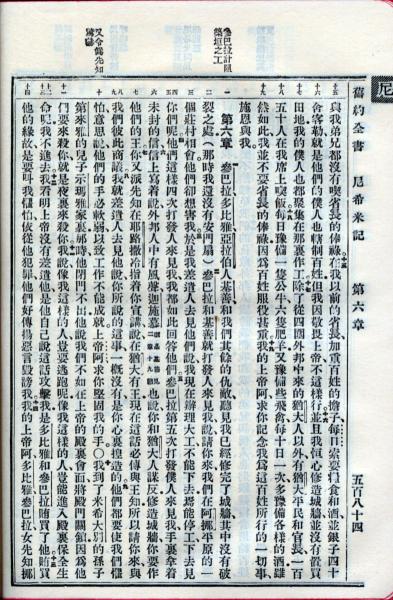 尼
舊約全書 尼希米記 第六章 五百八十四
與我弟兄都沒有喫省長的俸祿我以前的省長加重百姓的擔子每日索要糧食和酒並銀子四十
舍客勒就是他們的僕人也轄制百姓但我因敬畏上帝不這樣行並且我恆心修造城牆並沒有置買
田地我的僕人也都聚集在那裏作工除了從四圍外邦中來的猶大人以外有猶大平民和官長一百
五十人在我席上喫飯每日豫備一隻公牛六隻肥羊又豫備些飛禽每十日一次多豫備各樣的酒雖
然如此我並不要省長的俸祿因爲百姓服役甚重我的上帝阿求你記念我爲這百姓所行的一切事
施恩與我
參巴拉計阻
築垣之工
第六章 參巴拉多比雅亞拉伯人基善和我們其餘的仇敵聽見我已經修完了城牆其中沒有破
裂之處(那時我還沒有安門扇)參巴拉和基善就打發人來見我說請你來我們在阿挪平原的一
個莊村相會他們卻想害我於是我差遣人去見他們說我現在辦理大工不能下去焉能停工下去見
你們呢他們這樣四次打發人來見我我都如此回答他們參巴拉第五次打發僕人來見我手裏拿着
未封的信信上寫着說外邦人中有風聲迦施慕也說你和猶大人謀反修造城牆你要作
他們的王你又派先知在耶路撒冷指着你宣講說在猶大有王現在這話必傳與王知所以請你來與
我們彼此商議我就差遣人去見他說你所說的這事一概沒有是你心裏捏造的他們都要使我們懼
怕意思說他們的手必軟弱以致工作不能成就上帝阿求你堅固我的手○我到了米希大別的孫子
又令僞先知
第來雅的兒子示瑪雅家裏那時他閉門不出他說我們不如在上帝的殿裏會面將殿門關鎖因爲他
們要來殺你就是夜裏來殺你我說像我這樣的人豈要逃跑呢像我這樣的人豈能進入殿裏保全生
命呢我不進去我看明上帝沒有差遣他是他自己說這話攻擊我是多比雅和參巴拉賄買了他賄買
他的緣故是要叫我懼怕依從他犯罪他們好傳揚惡言毀謗我我的上帝阿多比雅參巴拉女先知挪